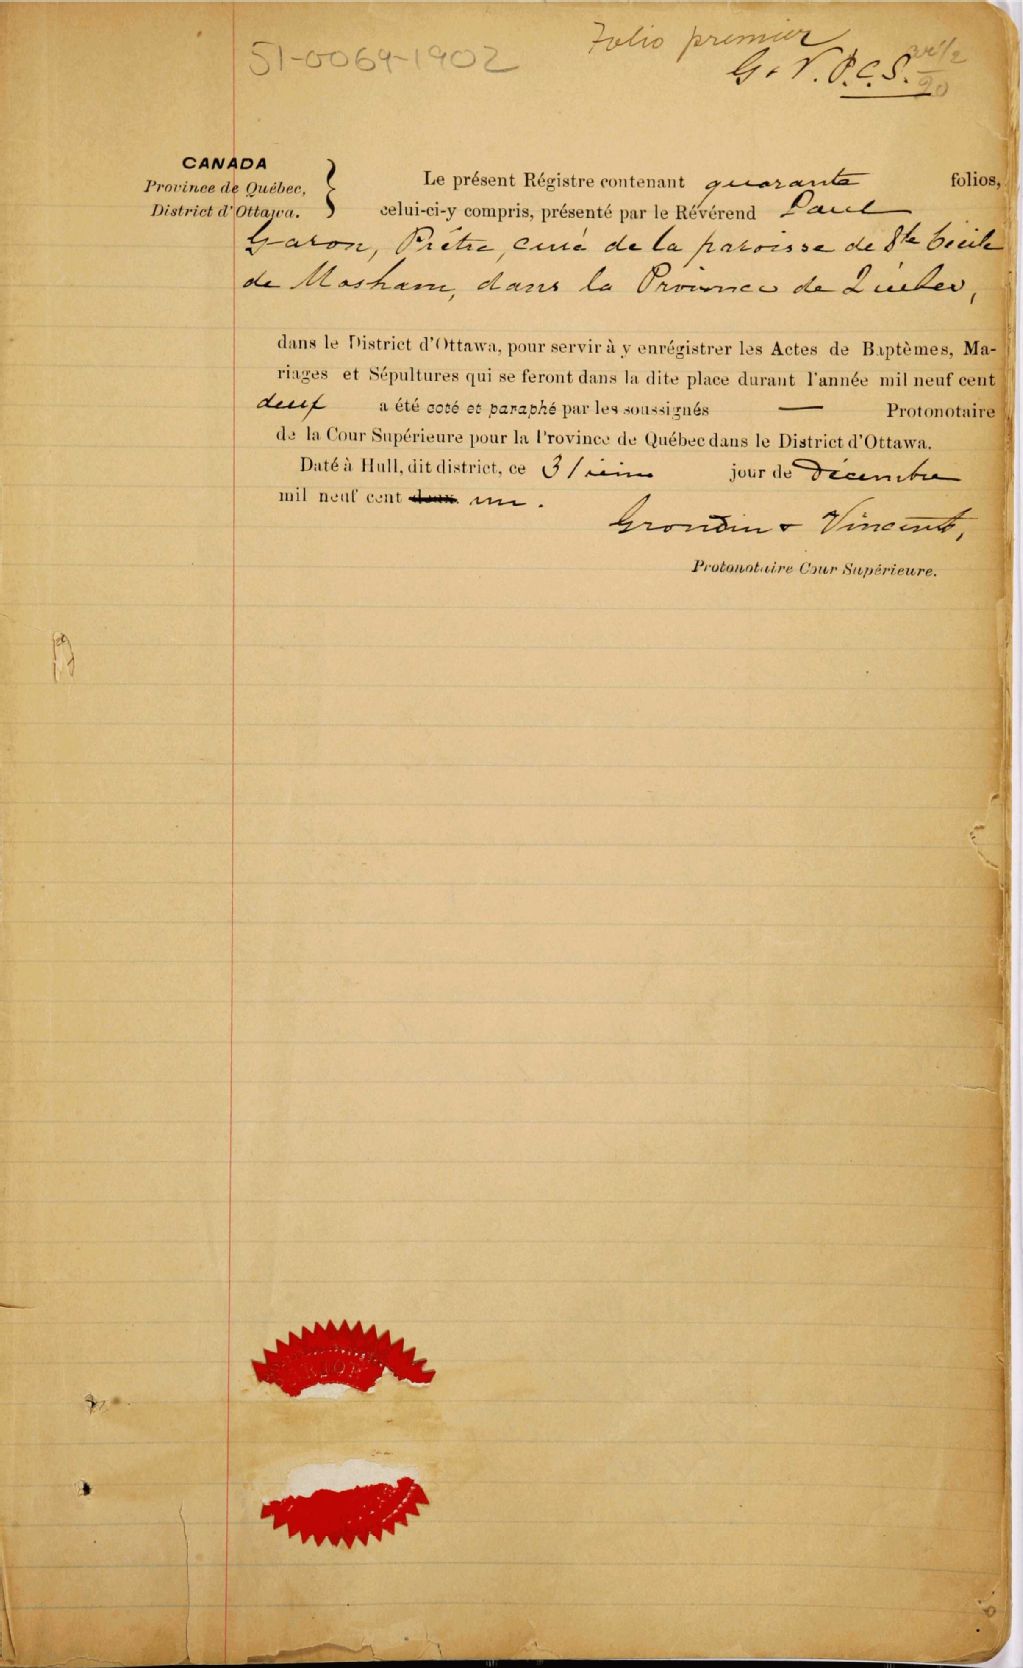 51-0069-1902
Folio premier
G & V. P.C.S.
CANADA
Province de Québec,
District d'Ottawa.
Le présent Régistre contenant quarante folios,
celui-ci-y compris, présenté par le Révérend Paul
Garon, Prêtre, curé de la paroisse de Ste Cécile
de Masham, dans la Province de Québec,
dans le District d'Ottawa, pour servir à y enrégistrer les Actes de Baptèmes, Ma-
riages et Sépultures qui se feront dans la dite place durant l'année mil neuf cent
deux a été coté et paraphé par les soussignés — Protonotaire
de la Cour Supérieure pour la Province de Québec dans le District d'Ottawa.
Daté à Hull, dit district, ce 31ième jour de Décembre
mil neuf cent deux un.
Grondin & Vincent,
Protonotaire Cour Supérieure.